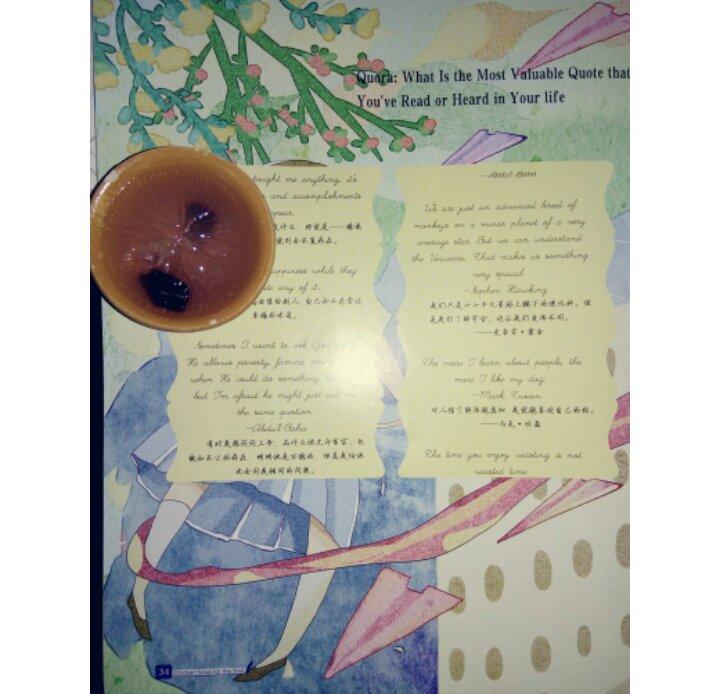 Quora: What Is the Most Valuable Quote that
You've Read or Heard in Your life
taught me anything, it's
and accomplishments
appear.
happiness while they
any of it.
幸福的味道。
Sometimes I want to ask God
He allows poverty, famine
when He could do something
but I'm afraid he might just ask
the same question.
—Abdu'l-Baha
有时我想问问上帝，为什么他允许贫穷、饥
饿和不公的存在，明明他是万能的，但是我怕他
也会问我相同的问题。
—Abdu'l-Baha
We are just an advanced breed of
monkeys on a minor planet of a very
average star. But we can understand
the Universe. That makes us something
very special.
—Stephen Hawking
我们只是小小平凡星球上猴子的进化种。但
是我们了解宇宙，这让我们变得不同。
——史蒂芬·霍金
The more I learn about people, the
more I like my dog.
—Mark Twain
对人性了解得越透彻，我就越喜欢自己的狗。
——马克·吐温
The time you enjoy wasting is not
wasted time.
34 Chicken Soup for the Soul